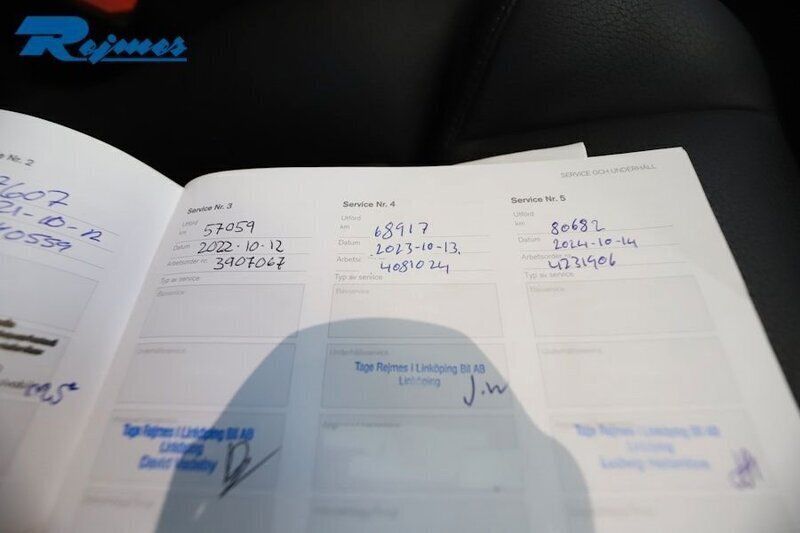 Rejmes
SERVICE OCH UNDERHÅLL
e Nr. 2
2607
21-10-12
40559
Service Nr. 3
Utförd
km 57059
Datum 2022-10-12
Arbetsorder nr. 3907067
Typ av service
Basservice
Underhållsservice
Tage Rejmes i Linköping Bil AB
Linköping
David
Service Nr. 4
Utförd
km 68917
Datum 2023-10-13.
Arbetso 4081024
Typ av service
Basservice
Underhållsservice
Tage Rejmes i Linköping Bil AB
Linköping
J.W
Service Nr. 5
Utförd
km 80682
Datum 2024-10-14
Arbetsorder 4231906
Typ av service
Basservice
Underhållsservice
Tage Rejmes i Linköping Bil AB
Linköping
Ludvig